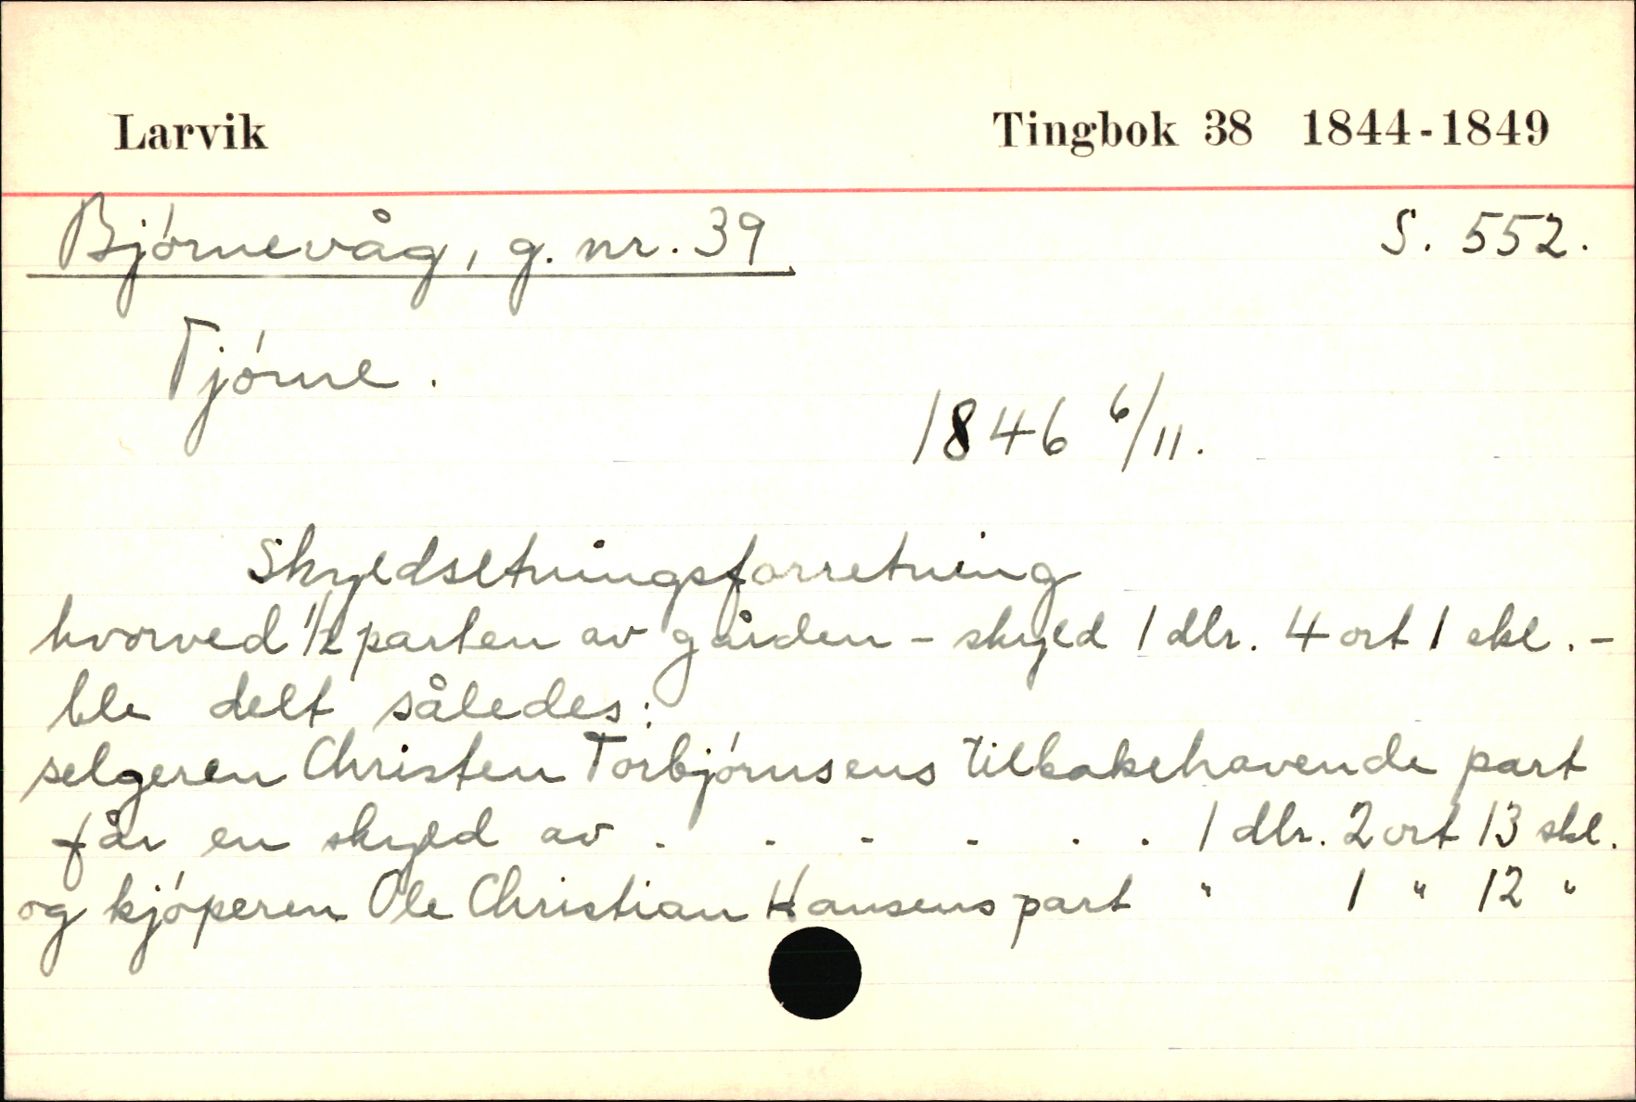 Larvik Tingbok 38 1844-1849
Bjørnevåg, g. nr. 39 S. 552.
Tjøme.
1846 6/11.
Skyldsetningsforretning
hvorved 1/2 parten av gården - skyld 1 dlr. 4 ort 1 skl. -
ble delt således:
selgeren Christen Torbjørnsens tilbakehavende part
får en skyld av . . . . . . 1 dlr. 2 ort 13 skl.
og kjøperen Ole Christian Hansens part " 1 " 12 "